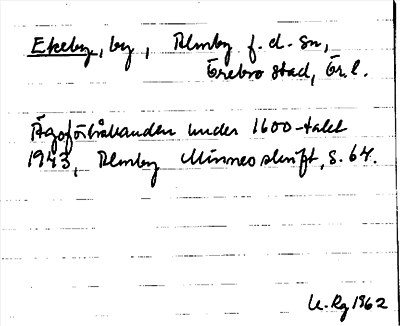 Ekeby, by, Almby f.d. sn,
Örebro stad, Ör.l.
Ägoförhållanden under 1600-talet
1943, Almby Minnesskrift, s. 64.
U-Rg 1962